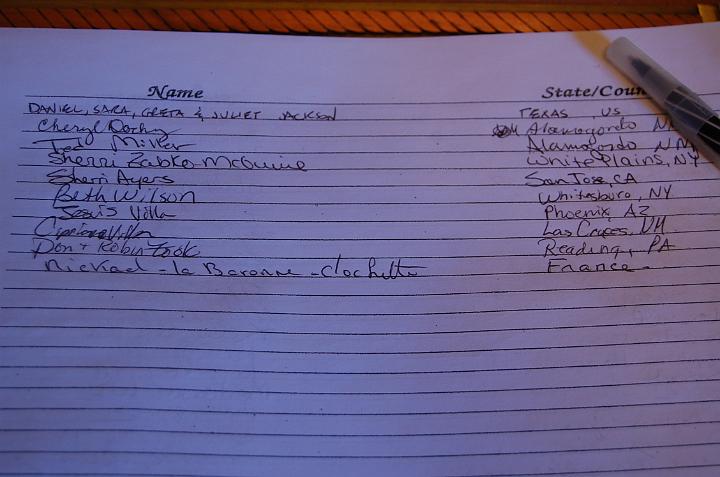 Name State/Coun
DANIEL, SARA, GRETA & JULIET JACKSON TEXAS, US
Cheryl Alamogordo NM
Ted Miller Alamogordo NM
Sherri Zabko-McGuire White Plains, NY
Sherri Ayers San Jose, CA
Beth Wilson Whitesboro, NY
Jesus Villa Phoenix, AZ
Villa Las Cruces, NM
Don + Robin Reading, PA
la Baronne - Clochette France